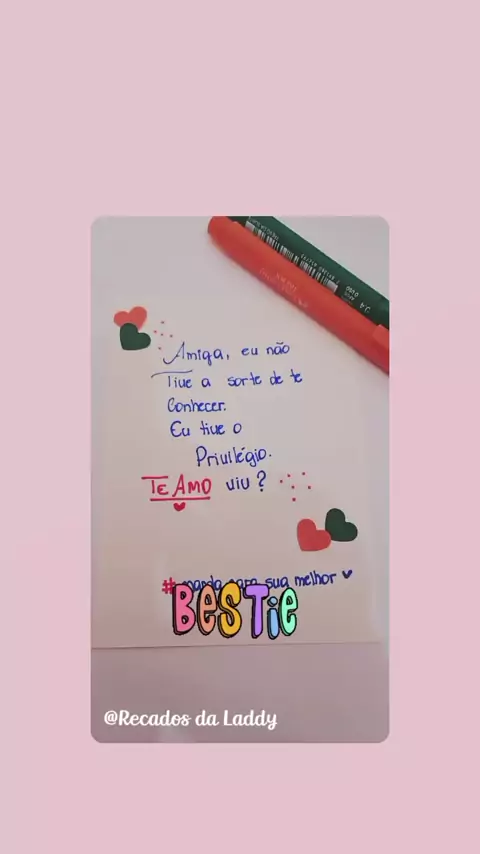 Amiga, eu não
Tive a sorte de te
Conhecer.
Eu tive o
Privilégio.
TE AMO viu?
# manda para sua melhor
BESTiE
@Recados da Laddy